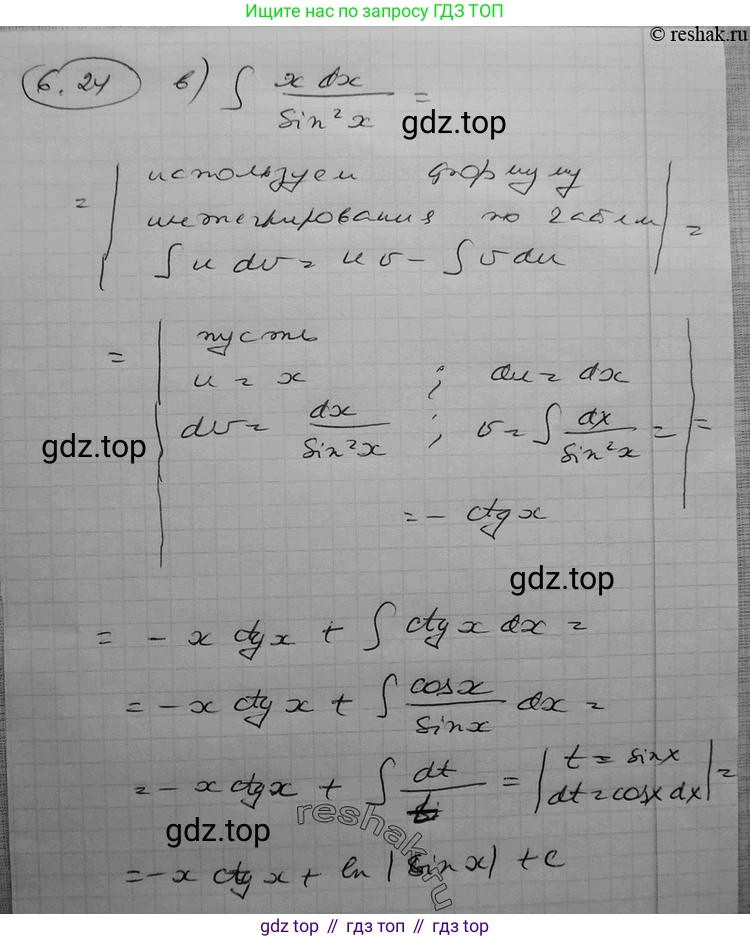 Ищите нас по запросу ГДЗ ТОП
© reshak.ru
6.24 в) ∫ x dx / sin²x =
gdz.top
= | используем формулу
интегрирования по частям | =
∫ u dv = u v - ∫ v du
= | пусть
u = x ; du = dx
dv = dx / sin²x ; v = ∫ dx / sin²x = | =
gdz.top
= - ctg x
gdz.top
= - x ctg x + ∫ ctg x dx =
= - x ctg x + ∫ cos x / sin x dx =
= - x ctg x + ∫ dt / t = | t = sin x
dt = cos x dx | =
gdz.top
reshak.ru
= - x ctg x + ln | sin x | + c
gdz.top // гдз топ // gdz.top // гдз топ // gdz.top